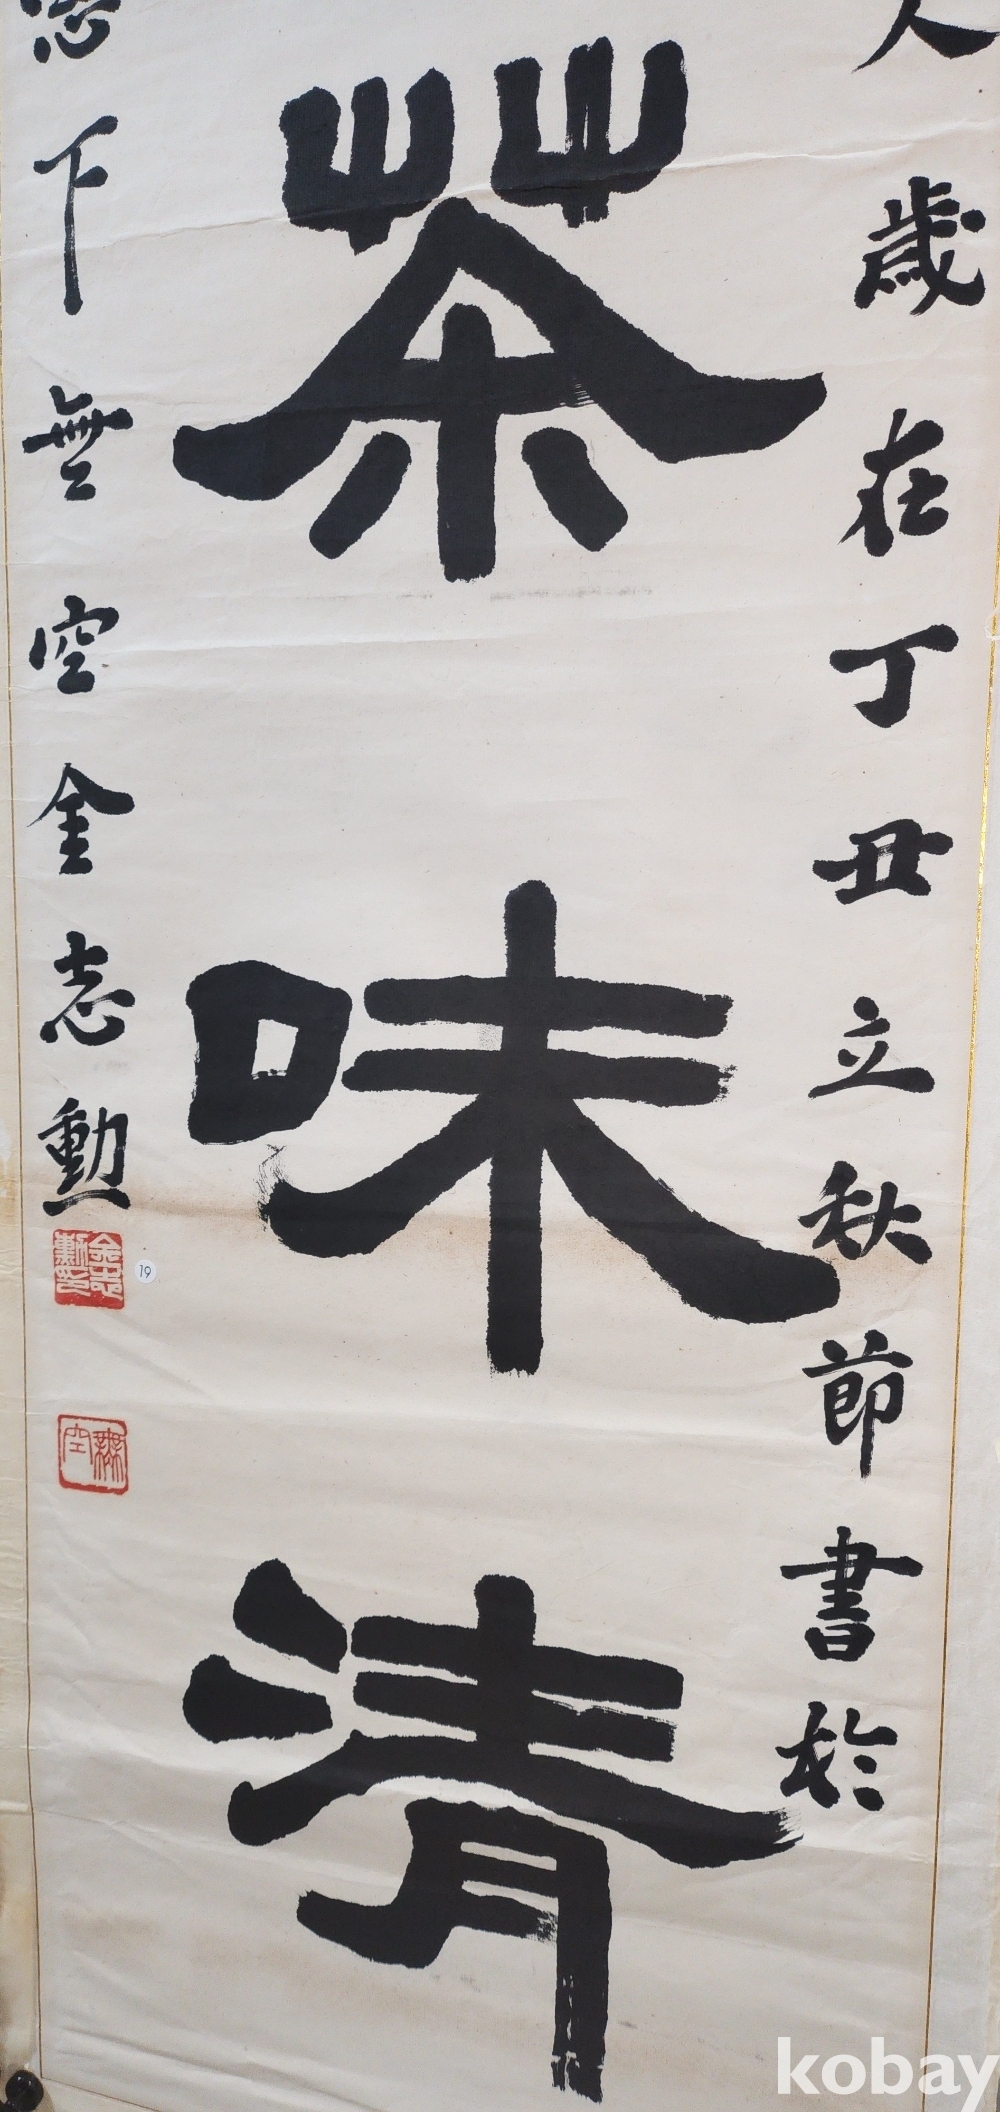 人歲在丁丑立秋節書於
茶味清
窓下無空金志勳
金志勳印
無空
19
kobay